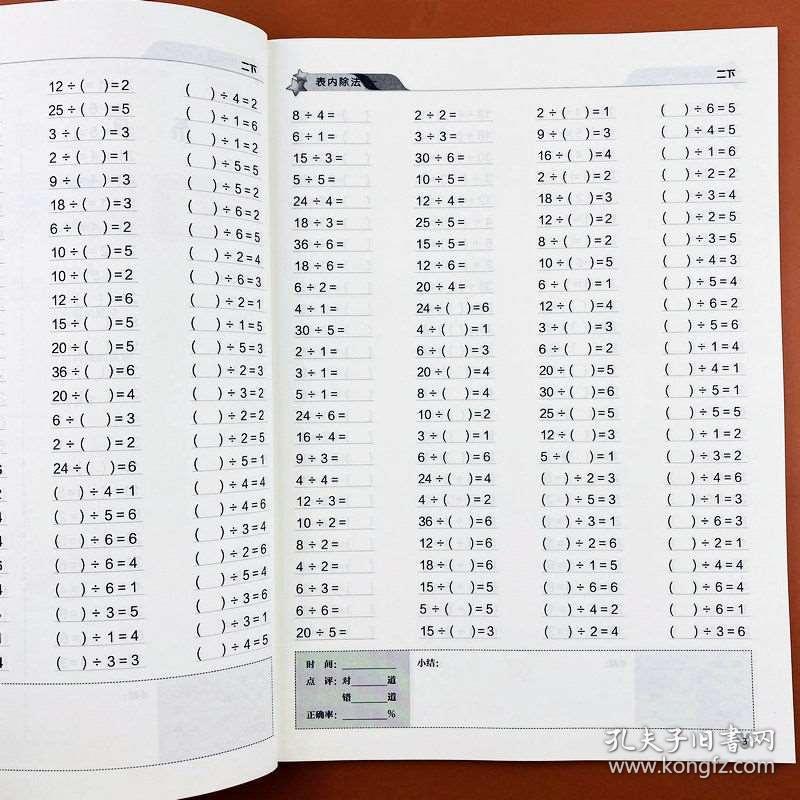 二下
12÷( )=2 ( )÷4=2
25÷( )=5 ( )÷1=6
3÷( )=3 ( )÷1=2
2÷( )=1 ( )÷5=5
9÷( )=3 ( )÷5=2
18÷( )=3 ( )÷6=2
6÷( )=2 ( )÷6=5
10÷( )=5 ( )÷2=4
10÷( )=2 ( )÷6=3
12÷( )=6 ( )÷2=1
15÷( )=5 ( )÷1=5
20÷( )=5 ( )÷5=3
36÷( )=6 ( )÷2=3
20÷( )=4 ( )÷3=2
6÷( )=3 ( )÷2=2
2÷( )=2 ( )÷2=5
24÷( )=6 ( )÷5=1
( )÷4=1 ( )÷4=4
( )÷5=6 ( )÷4=6
( )÷6=6 ( )÷3=4
( )÷6=4 ( )÷2=6
( )÷6=1 ( )÷5=4
( )÷3=5 ( )÷3=6
( )÷1=4 ( )÷3=1
( )÷3=3 ( )÷4=5
表内除法一 二下
8÷4= 2÷2= 2÷( )=1 ( )÷6=5
6÷1= 3÷3= 9÷( )=3 ( )÷4=5
15÷3= 30÷6= 16÷( )=4 ( )÷1=6
5÷5= 10÷5= 2÷( )=2 ( )÷2=2
24÷4= 12÷4= 18÷( )=3 ( )÷3=4
18÷3= 25÷5= 12÷( )=2 ( )÷2=5
36÷6= 15÷5= 8÷( )=2 ( )÷3=5
18÷6= 12÷6= 10÷( )=5 ( )÷4=3
6÷2= 20÷4= 6÷( )=1 ( )÷5=4
4÷1= 24÷( )=6 12÷( )=4 ( )÷6=2
30÷5= 4÷( )=1 3÷( )=3 ( )÷5=6
2÷1= 6÷( )=3 6÷( )=2 ( )÷1=4
3÷1= 20÷( )=4 20÷( )=5 ( )÷4=1
5÷1= 8÷( )=4 30÷( )=6 ( )÷5=1
24÷6= 10÷( )=2 25÷( )=5 ( )÷5=5
16÷4= 3÷( )=1 12÷( )=3 ( )÷1=2
9÷3= 6÷( )=6 5÷( )=1 ( )÷3=2
4÷4= 24÷( )=4 ( )÷2=3 ( )÷4=6
12÷3= 4÷( )=2 ( )÷5=3 ( )÷1=3
10÷2= 36÷( )=6 ( )÷3=1 ( )÷6=3
8÷2= 12÷( )=6 ( )÷2=6 ( )÷2=1
4÷2= 18÷( )=6 ( )÷1=5 ( )÷4=4
6÷3= 15÷( )=5 ( )÷6=6 ( )÷6=4
6÷6= 5÷( )=5 ( )÷4=2 ( )÷6=1
20÷5= 15÷( )=3 ( )÷2=4 ( )÷3=6
时 间:______ 小结:
点 评:对____道
错____道
正确率:______%
孔夫子旧书网
www.kongfz.com